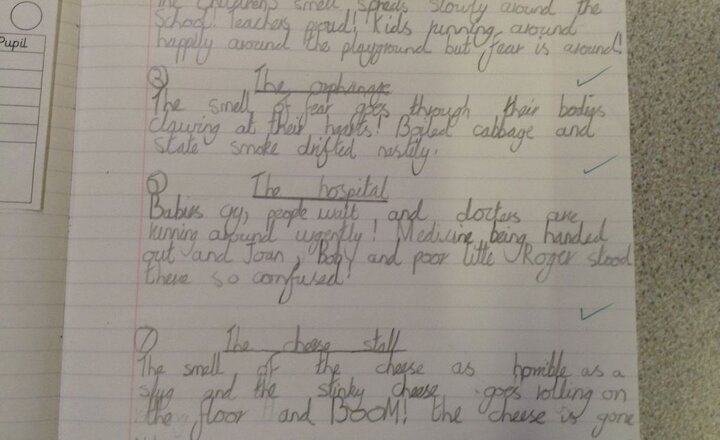 Pupil
The Children's smell spreds slowly around the
School! Teachers proud! Kids running around
happily around the playground but fear is around!
The orphanage
The smell of fear goes through their bodys
clawing at their hearts! Boiled cabbage and
stale smoke drifted nastily.
The hospital
Babies cry, people wait and doctors are
running around urgently! Medicine being handed
out and Joan, Bony and poor little Roger stood
there so comfused!
7 The cheese stall
The smell of the cheese as horrible as a
slug and the stinky cheese goes rolling on
the floor and BOOM! the cheese is gone